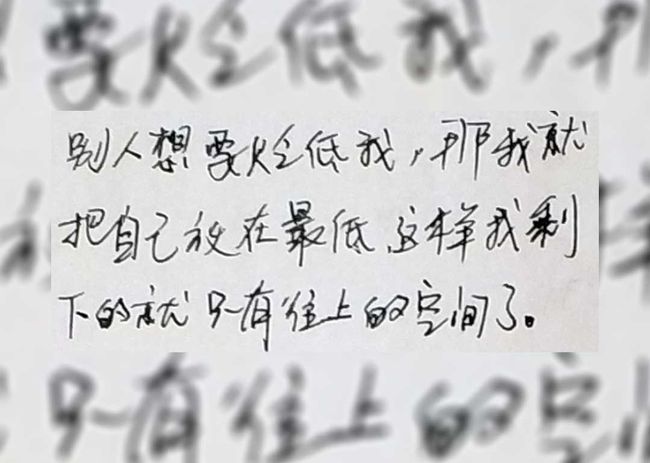 别人想要贬低我，那我就
把自己放在最低，这样我剩
下的就只有往上的空间了。